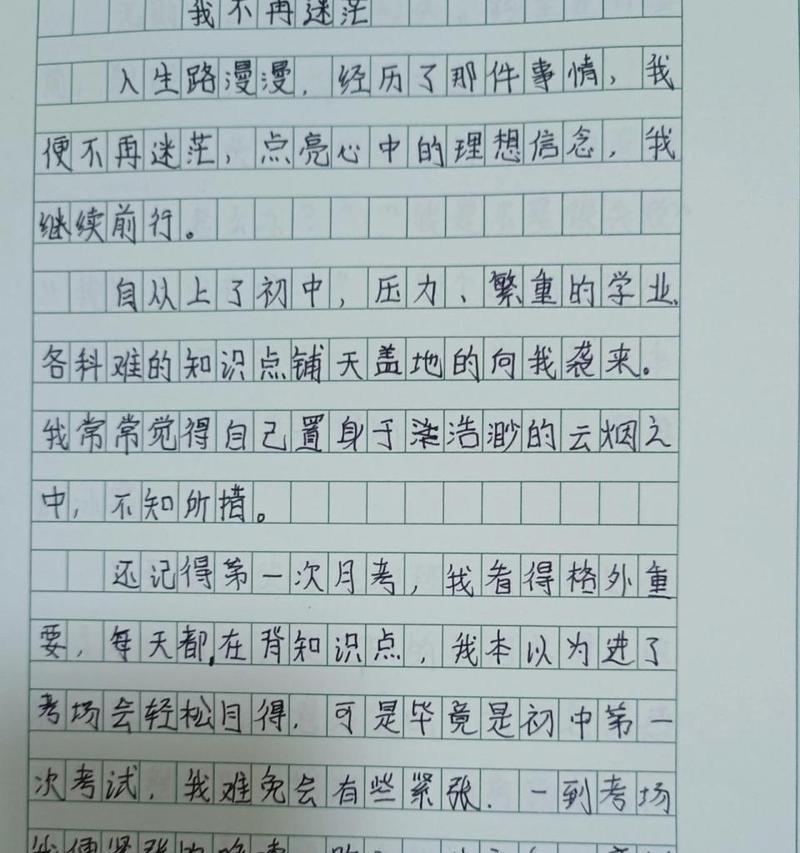 我不再迷茫
人生路漫漫，经历了那件事情，我
便不再迷茫，点亮心中的理想信念，我
继续前行。
自从上了初中，压力、繁重的学业、
各科难的知识点铺天盖地的向我袭来。
我常常觉得自己置身于浩渺的云烟之
中，不知所措。
还记得第一次月考，我看得格外重
要，每天都在背知识点，我本以为进了
考场会轻松自得，可是毕竟是初中第一
次考试，我难免会有些紧张．一到考场
我便紧张的